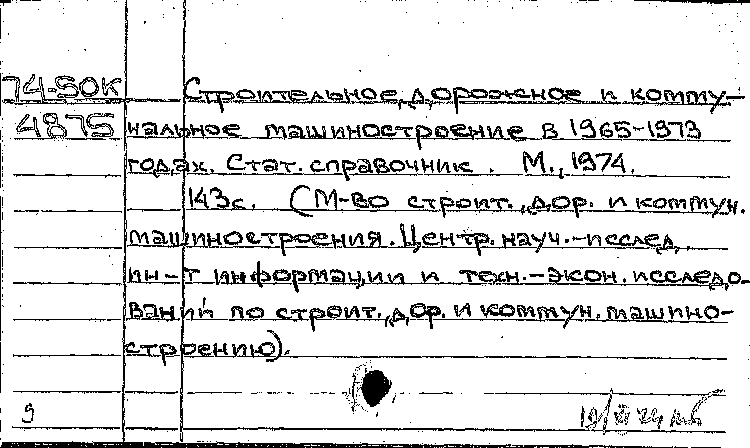 74-50К Строительное, дорожное и комму-
4875 нальное машиностроение в 1965-1973
годах. Стат. справочник. М., 1974.
143с. (М-во строит., дор. и коммун.
машиностроения. Центр. науч.-исслед.
ин-т информации и техн.-экон. исследо-
ваний по строит., дор. и коммун. машино-
строению).
9